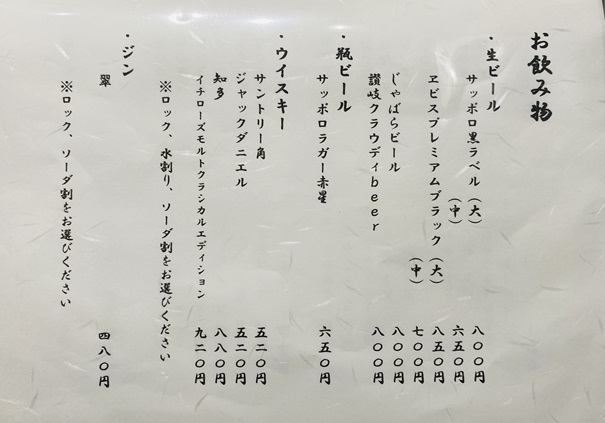 お飲み物
・生ビール
サッポロ黒ラベル（大） 八〇〇円
（中） 六五〇円
ヱビスプレミアムブラック（大） 八五〇円
（中） 七〇〇円
じゃばらビール 八〇〇円
讃岐クラウディbeer 八〇〇円
・瓶ビール
サッポロラガー赤星 六五〇円
・ウイスキー
サントリー角 五二〇円
ジャックダニエル 五二〇円
知多 八八〇円
イチローズモルトクラシカルエディション 九二〇円
※ロック、水割り、ソーダ割をお選びください
・ジン
翠 四八〇円
※ロック、ソーダ割をお選びください